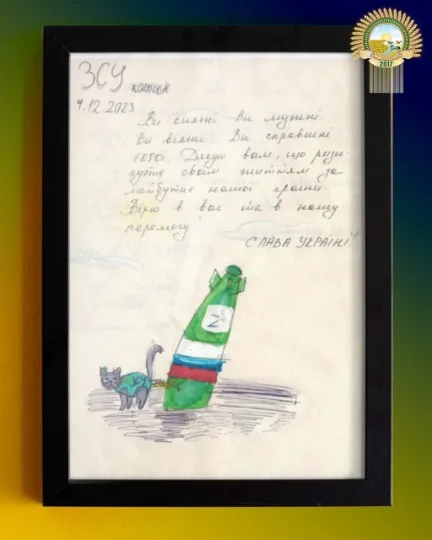 ЗСУ котик
4.12.2023
Ви сильні Ви мужні
Ви вільні Ви справжні
герої. Дякую вам, що ризи-
куєте своїм життям за
майбутнє нашої країни
Вірю в вас та в нашу
перемогу
СЛАВА УКРАЇНІ!
Z
2017